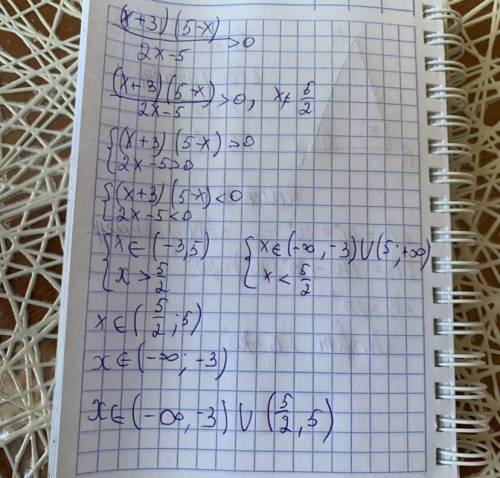 (x+3)(5-x)
2x-5 >0
(x+3)(5-x)
2x-5 >0, x≠ 5/2
{(x+3)(5-x)>0
{2x-5>0
{(x+3)(5-x)<0
{2x-5<0
{x∈(-3,5) {x∈(-∞,-3)∪(5;+∞)
{x>5/2 {x<5/2
x∈(5/2;5)
x∈(-∞;-3)
x∈(-∞,-3)∪(5/2,5)